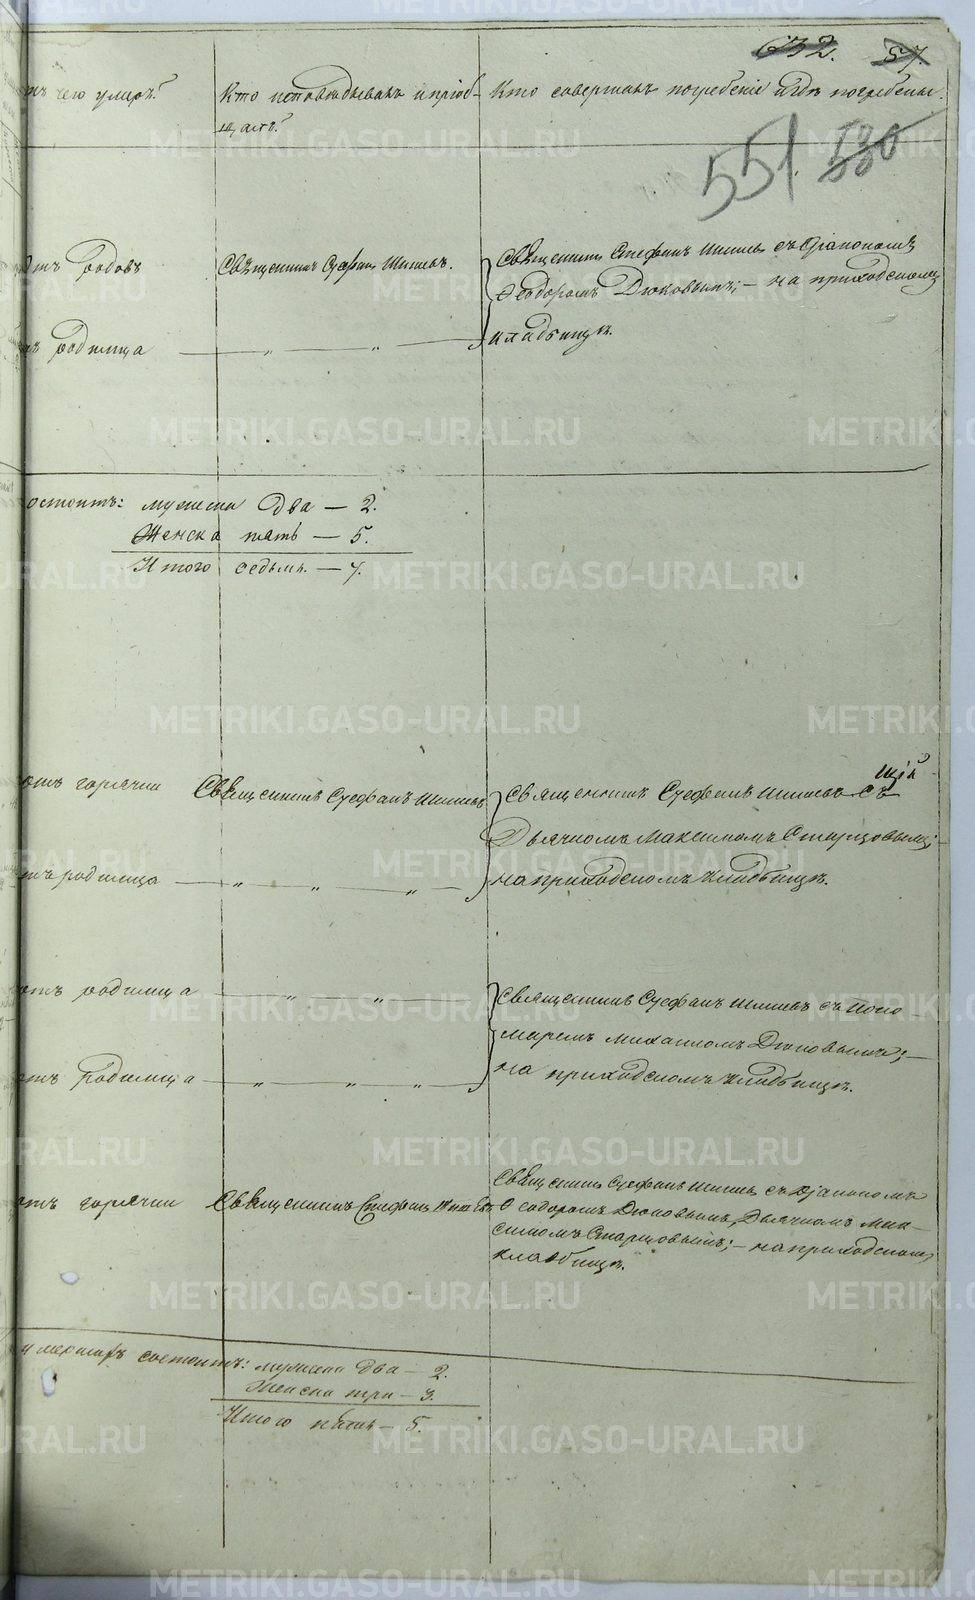 632. 57
отъ чего умеръ?
Кто исповѣдывалъ и пріоб-
щалъ?
Кто совершалъ погребеніе и гдѣ погребены.
551 530
отъ родовъ
Священникъ Стефанъ
Священникъ Стефанъ съ Діакономъ
Ѳеодоромъ Дюковымъ; – на приходскомъ
кладбищѣ.
отъ родимца — „ — „ —
состоитъ: мужеска два — 2.
Женска пять — 5.
Итого седьмь. — 7.
отъ горячки
Священникъ Стефанъ
Священникъ Стефанъ съ
Дьячкомъ Максимомъ Старцовымъ;
на приходскомъ кладбищѣ.
отъ родимца — „ — „ — „ —
отъ родимца — „ — „ —
Священникъ Стефанъ съ поно-
маремъ Михаиломъ Дюковымъ; —
на приходскомъ кладбищѣ.
отъ родимца — „ — „ — „ —
отъ горячки
Священникъ Стефанъ
Священникъ Стефанъ съ Діакономъ
Ѳеодоромъ Дюковымъ, Дьячкомъ Мак-
симомъ Старцовымъ; – на приходскомъ
кладбищѣ.
умершихъ состоитъ: мужеска два — 2.
Женска три — 3.
Итого пять — 5.
METRIKI.GASO-URAL.RU